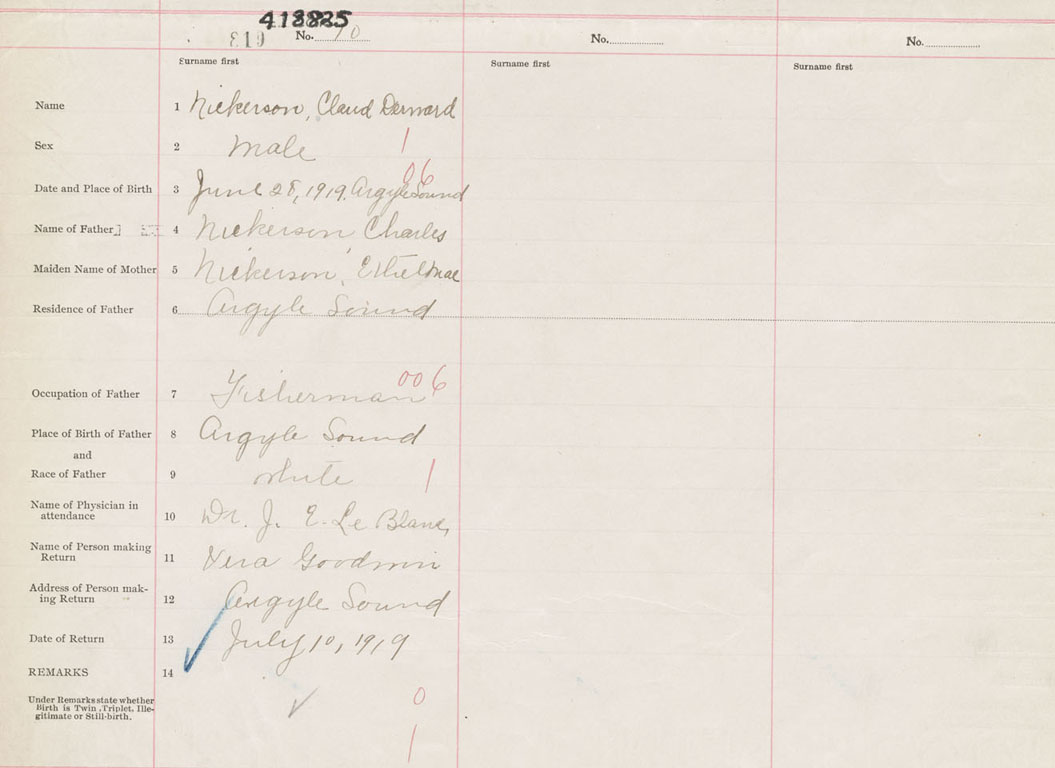 418825
819 No. 70 No. No.
Surname first Surname first Surname first
Name 1 Nickerson, Claud Bernard
Sex 2 Male 1
06
Date and Place of Birth 3 June 28, 1919. Argyle Sound
Name of Father 4 Nickerson Charles
Maiden Name of Mother 5 Nickerson, Ethel Mae
Residence of Father 6 Argyle Sound
Occupation of Father 7 Fisherman 006
Place of Birth of Father 8 Argyle Sound
and
Race of Father 9 white 1
Name of Physician in
attendance 10 Dr. J. E. Le Blanc,
Name of Person making
Return 11 Vera Goodwin
Address of Person mak-
ing Return 12 Argyle Sound
Date of Return 13 July 10, 1919
REMARKS 14
Under Remarks state whether
Birth is Twin, Triplet, Ille-
gitimate or Still-birth.
0
1